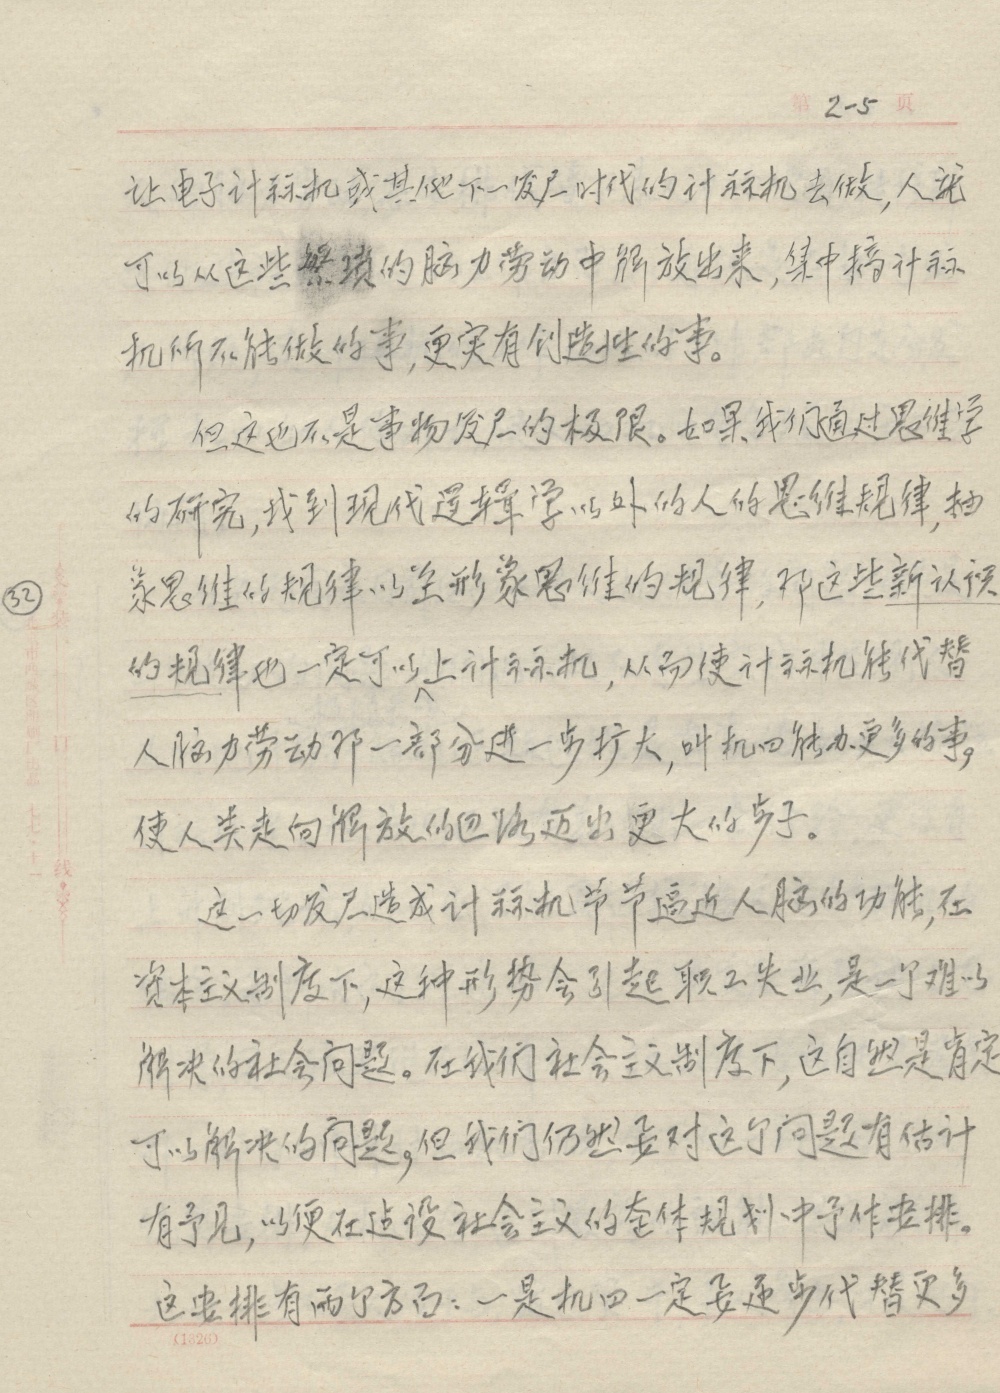 第 2-5 页
让电子计祘机或其他下一发展时代的计祘机去做,人就
可以从这些繁琐的脑力劳动中解放出来,集中搞计祘
机所不能做的事,更富有创造性的事。
但这也不是事物发展的极限。如果我们通过思维学
的研究,找到现代逻辑学以外的人的思维规律,抽
象思维的规律以至形象思维的规律,那这些新认识
的规律也一定可以上计祘机,从而使计祘机能代替
人脑力劳动那一部分进一步扩大,叫机四能办更多的事,
使人类走向解放的道路迈出更大的步子。
这一切发展造成计祘机节节逼近人脑的功能,在
资本主义制度下,这种形势会引起职工失业,是一个难以
解决的社会问题。在我们社会主义制度下,这自然是肯定
可以解决的问题,但我们仍然要对这个问题有估计
有予见,以便在建设社会主义的全体规划中予作安排。
这安排有两个方面:一是机四一定要逐步代替更多
32
(1326)